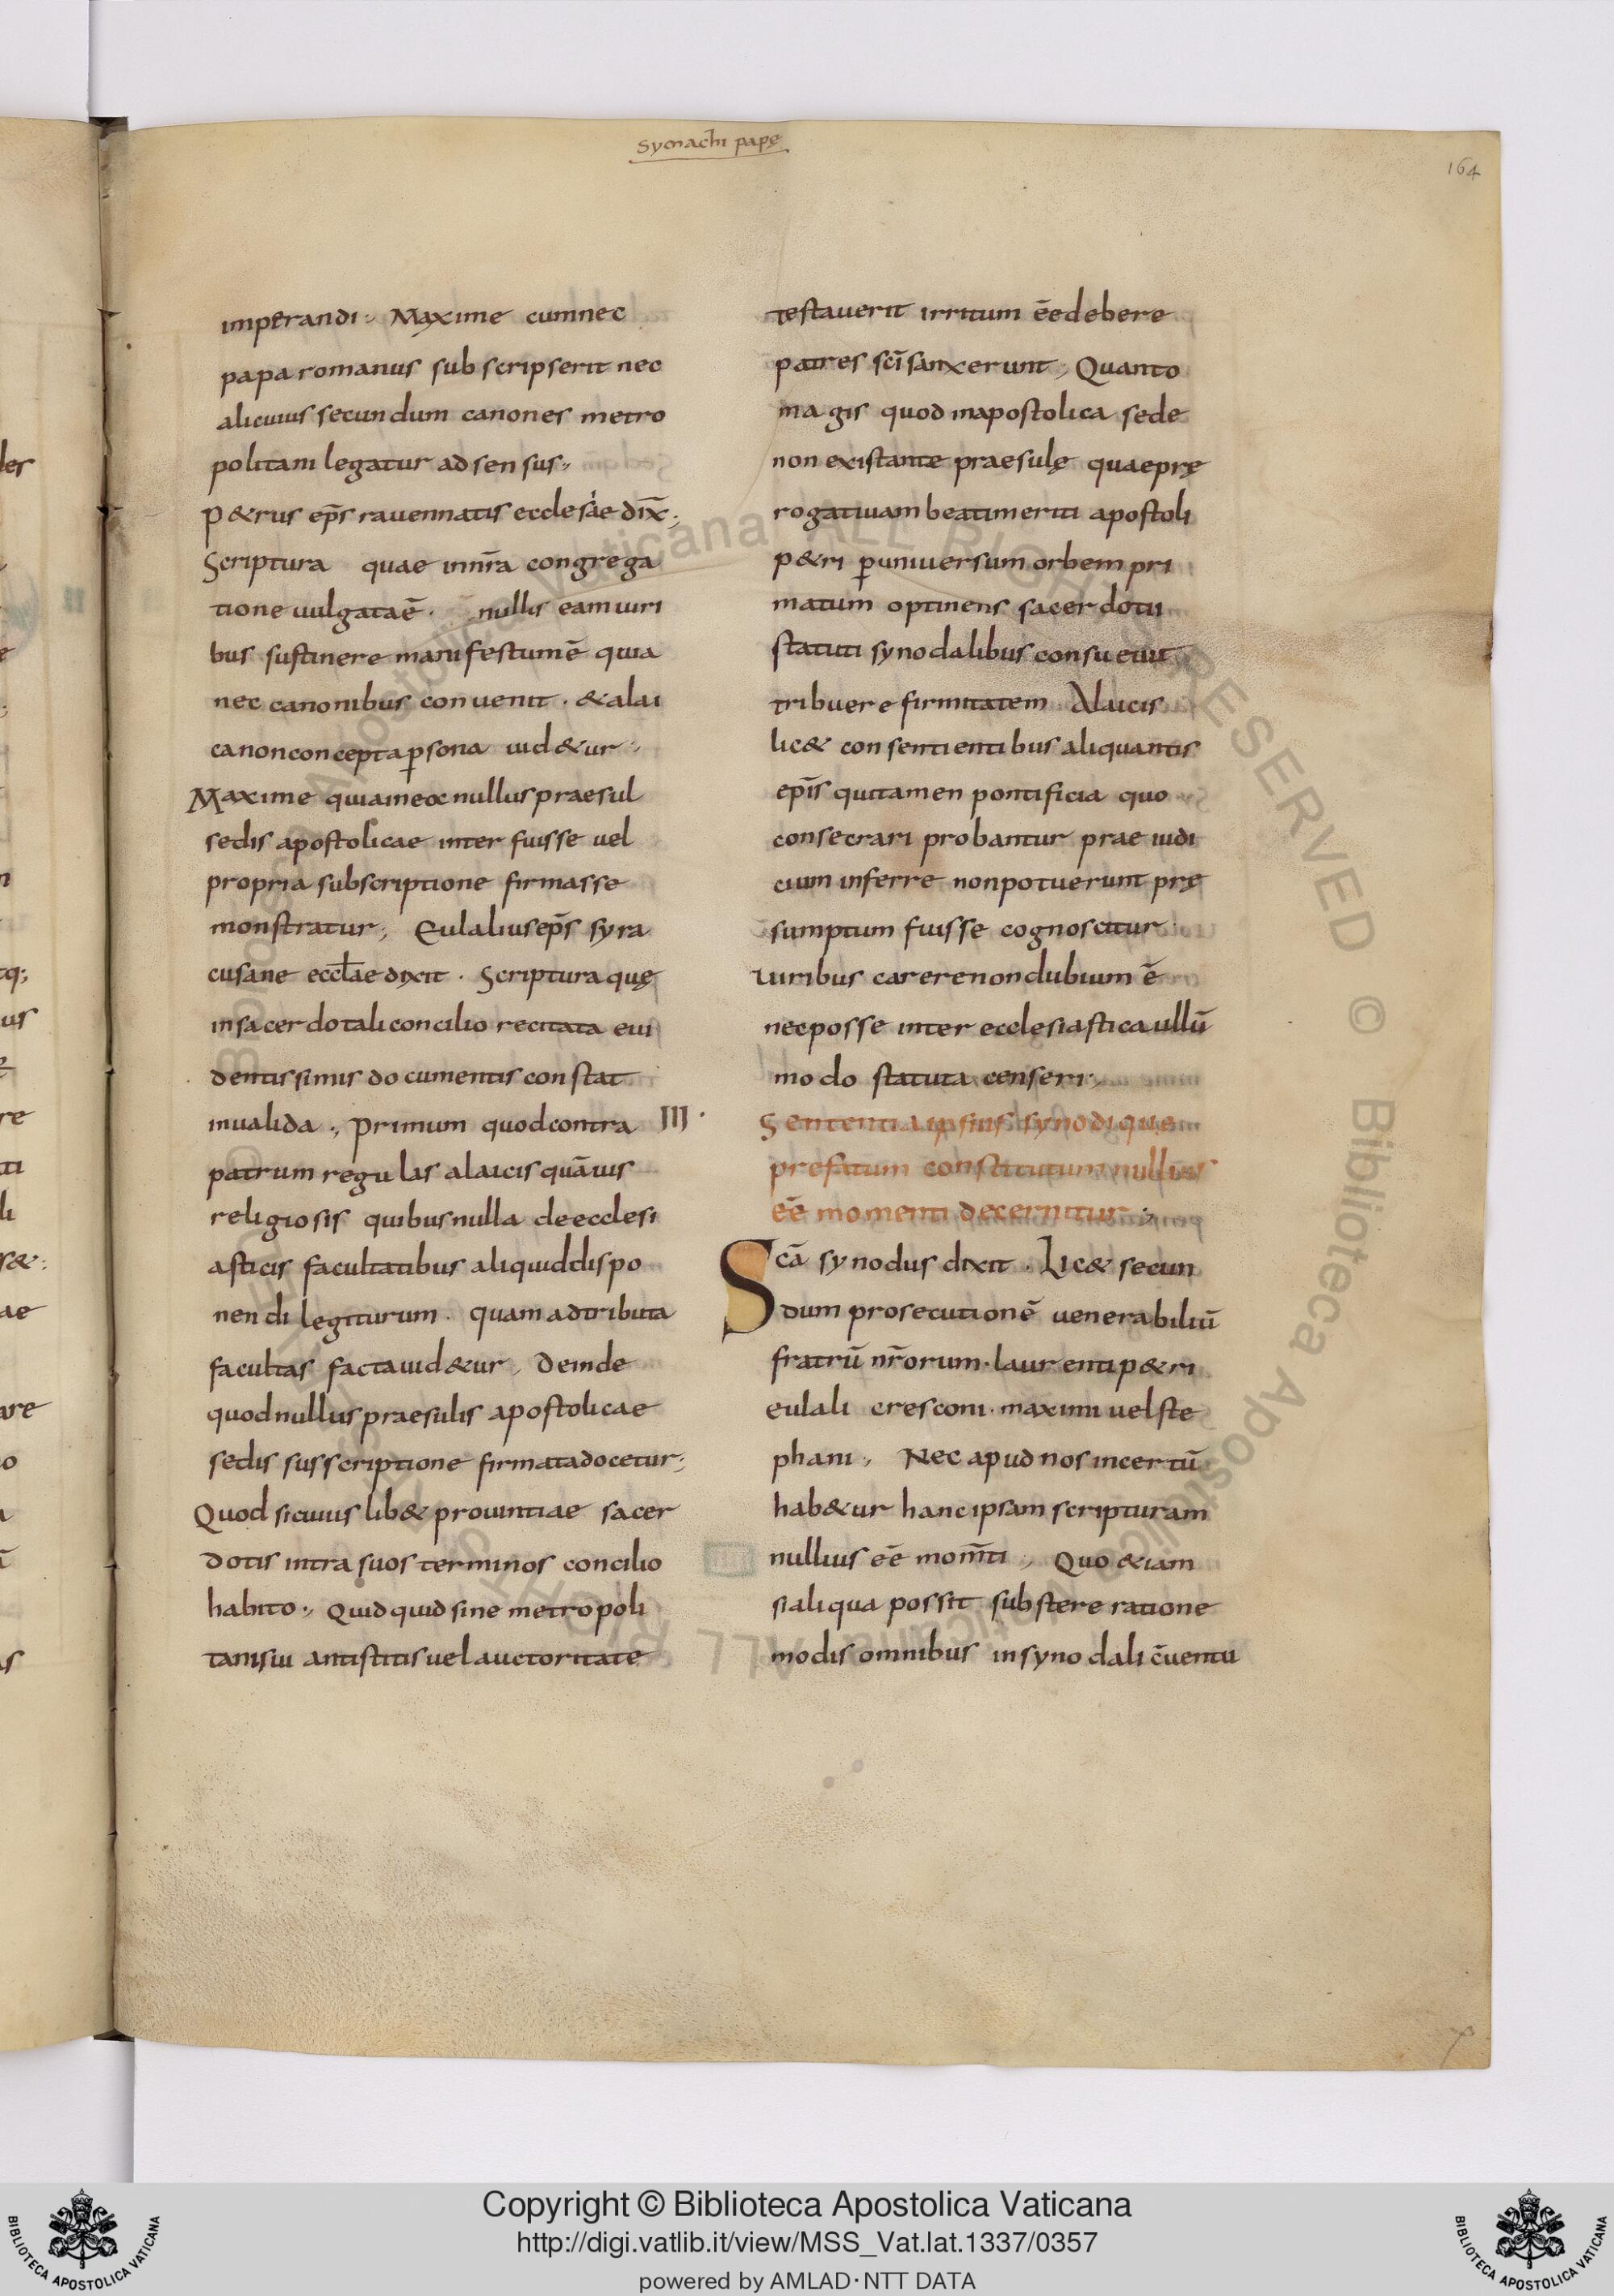 Symachi papę
164
imperandi; Maxime cumnec
papa romanus subscripserit nec
alicuius secundum canones metro
politani legatur adsensus;
P&rus ep̄s rauennatis ecclesiae dix̄;
Scriptura quae innr̄a congrega
tione uulgataē. nullis eam uiri
bus sustinere manifestumē quia
nec canonibus conuenit. & alai
canonconcepta ꝑsona uid&ur;
Maxime quia
nullus praesul
sedis apostolicae interfuisse uel
propria subscriptione firmasse
monstratur; Eulalius ep̄s syra
cusane eccl̄ae dixit. Scriptura quę
insacerdotali concilio recitata eui
dentissimis documentis constat
inualida; Primum quodcontra
patrum regulas alaicis quāuis
religiosis quibusnulla deecclesi
asticis facultatibus aliquid dispo
nendi legiturum. quam adtributa
facultas facta uid&ur, Deinde
quodnullus praesulis apostolicae
sedis susscriptione firmata docetur;
Quod sicuius lib& prouintiae sacer
dotis intra suos terminos concilio
habito; Quidquid sine metropoli
tanisui antistitis uel auctoritate
testauerit irritum eēdebere
patres sc̄i sanxerunt; Quanto
magis quod inapostolica sede
non existante praesulę quaeprę
rogatiuam beatimeriti apostoli
p&ri ꝑuniuersum orbem pri
matum optinens sacerdotii
statuti synodalibus consueuit
tribuere firmitatem. Alaicis
lic& consentientibus aliquantis
ep̄is quitamen pontificia quo
consecrari probantur praeiudi
cium inferre nonpotuerunt prę
sumptum fuisse cognoscitur
Uiribus carerenondubium ē
necposse inter ecclesiastica ullū
modo statuta censeri;
III.
Sententia ipsius synodi que
prefatum constitutum nullius
eē momenti decernitur;
Scā synodus dixit. Lic& secun
dum prosecutionē uenerabiliū
fratrū nr̄orum. laurenti p&ri
eulali cresconi. maximi uel ste
phani; Nec apud nos incertū
hab&ur hanc ipsam scripturam
nullius eē mom̄ti; Quo &iam
sialiqua possit substere ratione
modis omnibus insynodali c̄uentu
Copyright © Biblioteca Apostolica Vaticana
http://digi.vatlib.it/view/MSS_Vat.lat.1337/0357
powered by AMLAD·NTT DATA